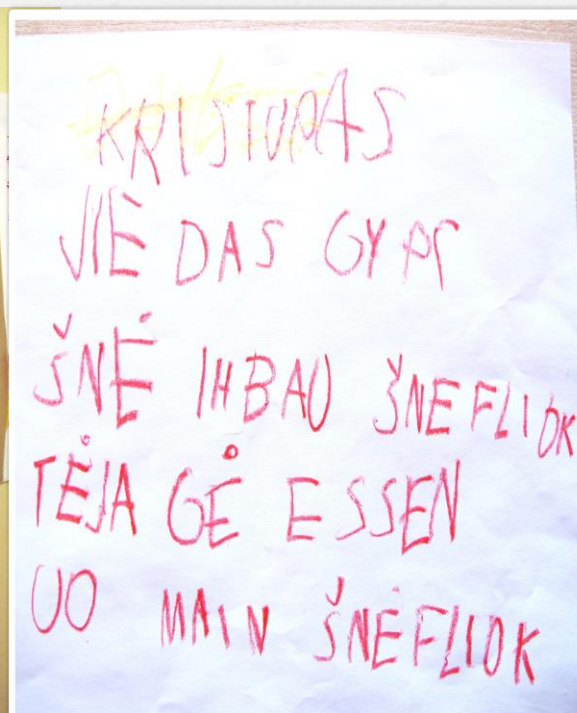 KRISTUPAS
JIĖ DAS GYPS
ŠNĖ IHBAU ŠNEFLIOK
TĖJA GĖ ESSEN
UO MAIN ŠNĖFLIOK